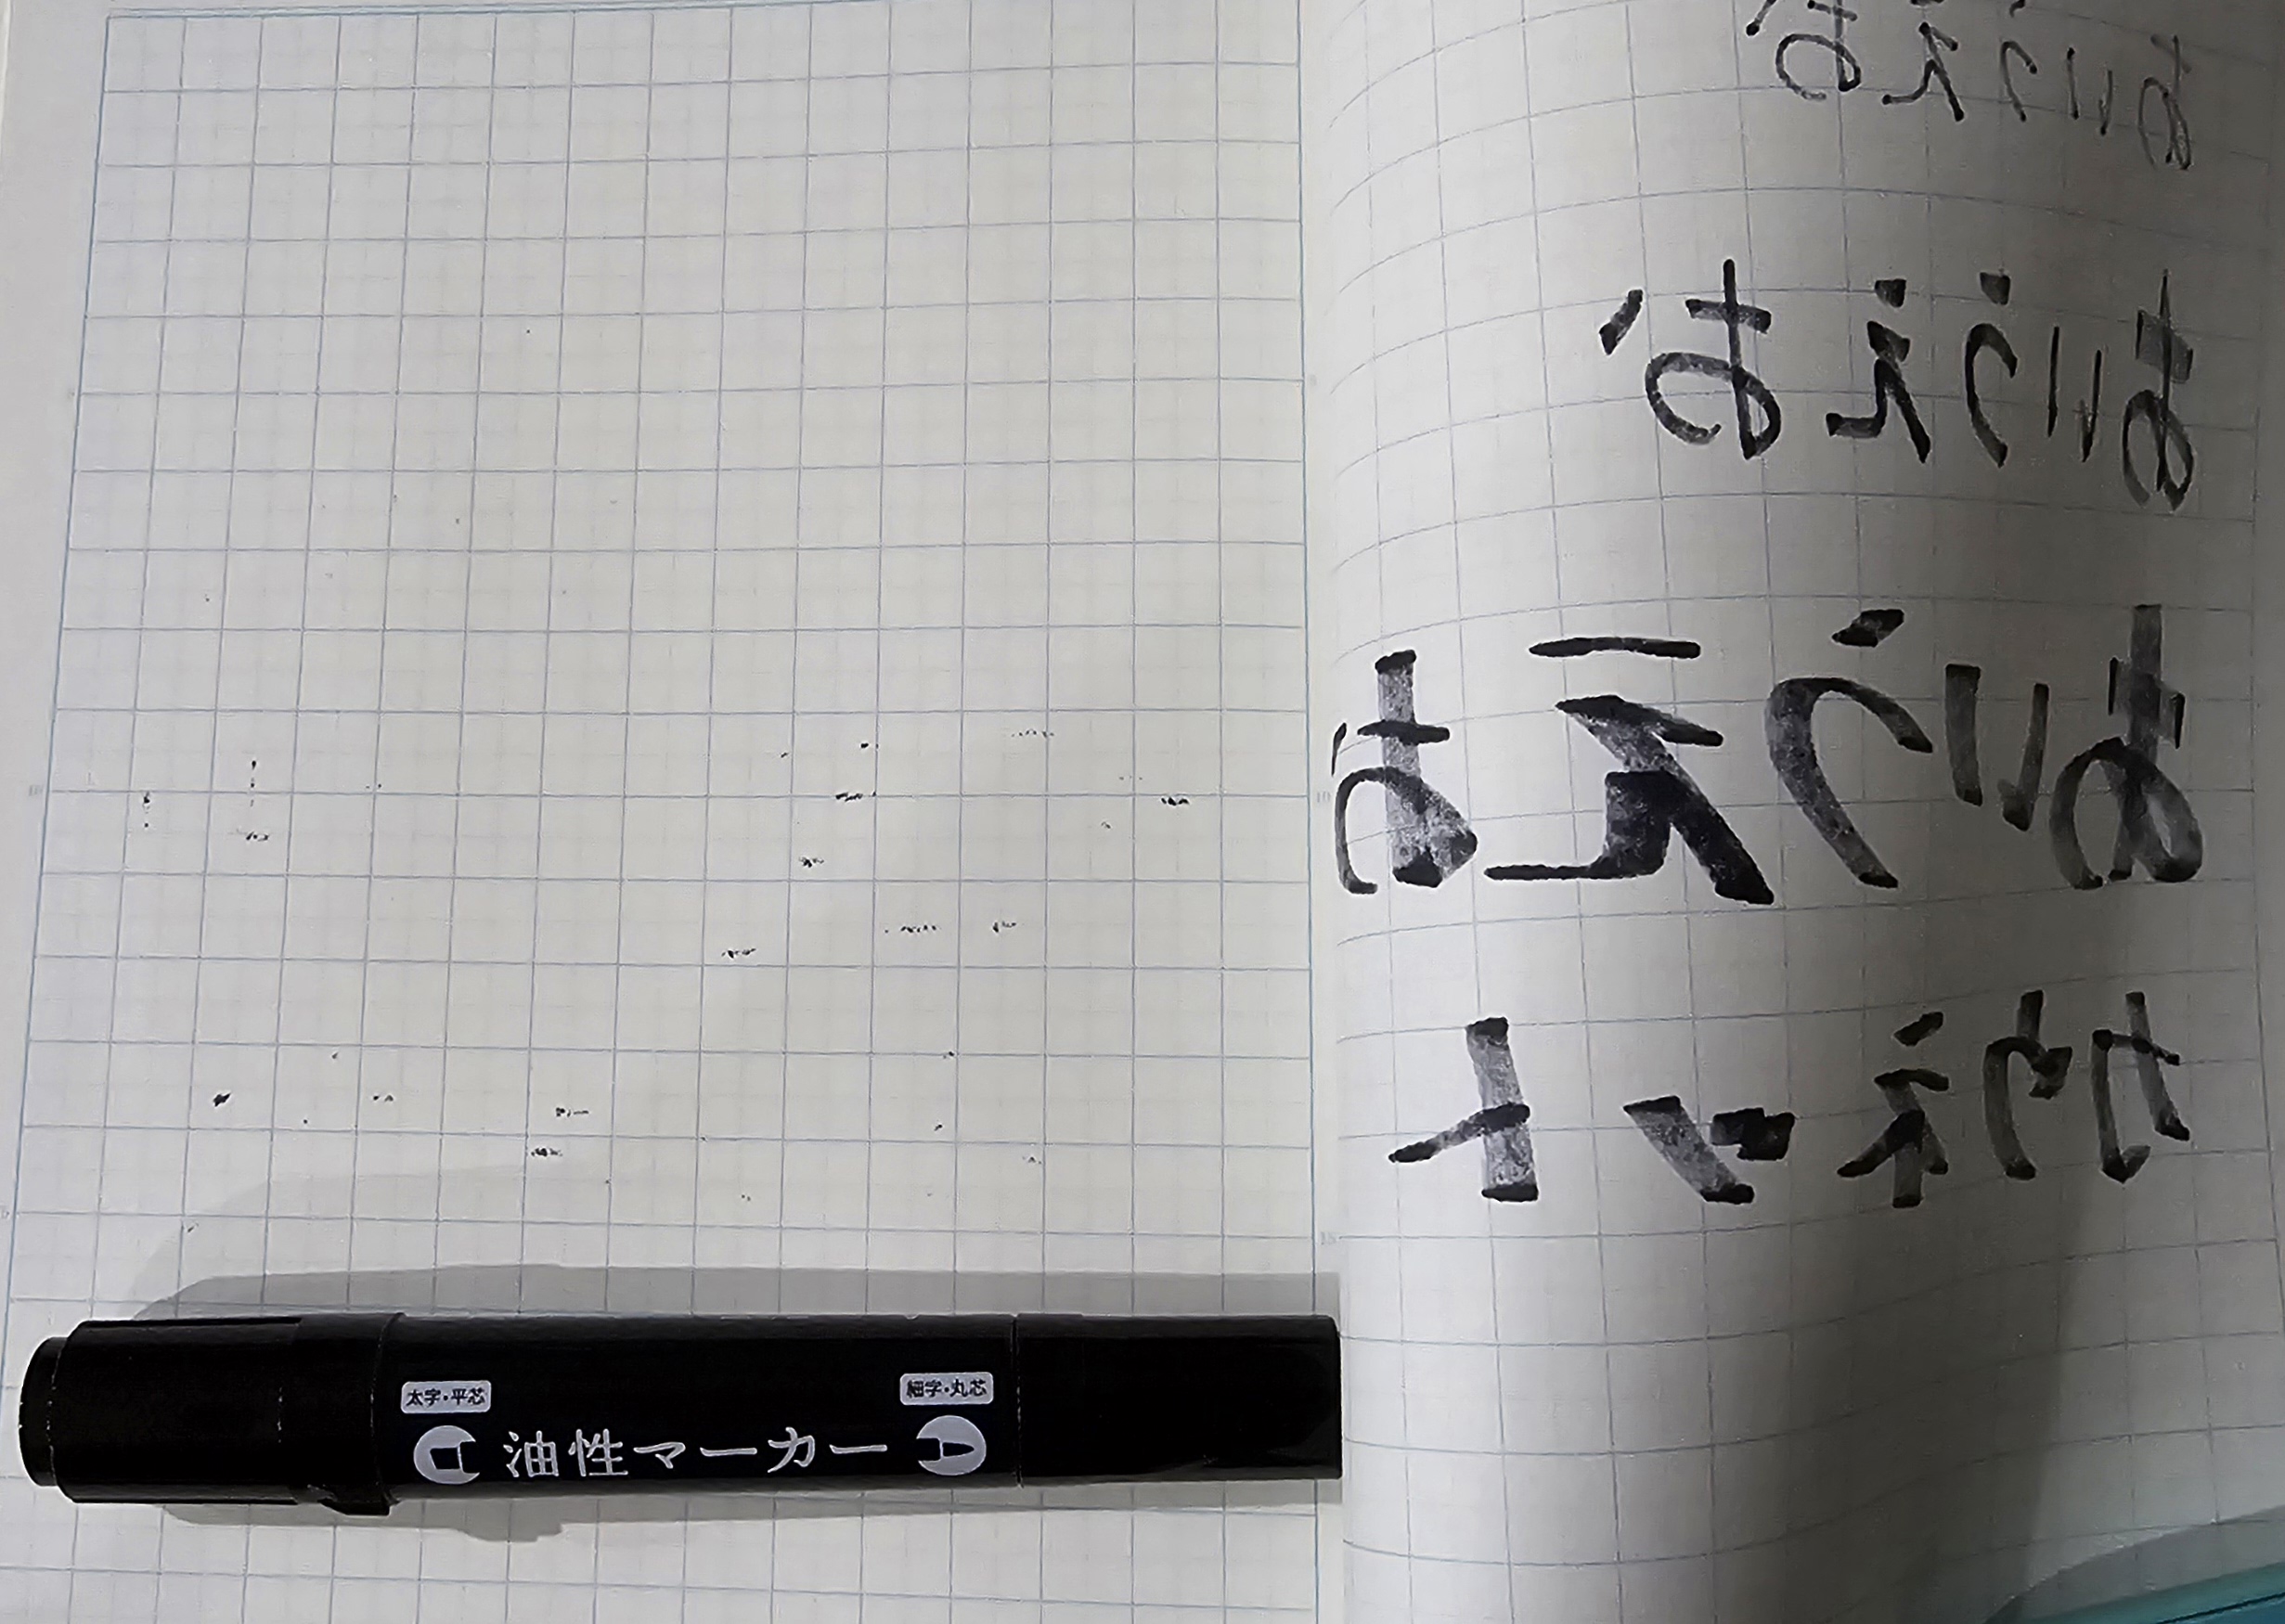 あいうえお
あいうえお
あいうえお
太字・平芯
油性マーカー
細字・丸芯